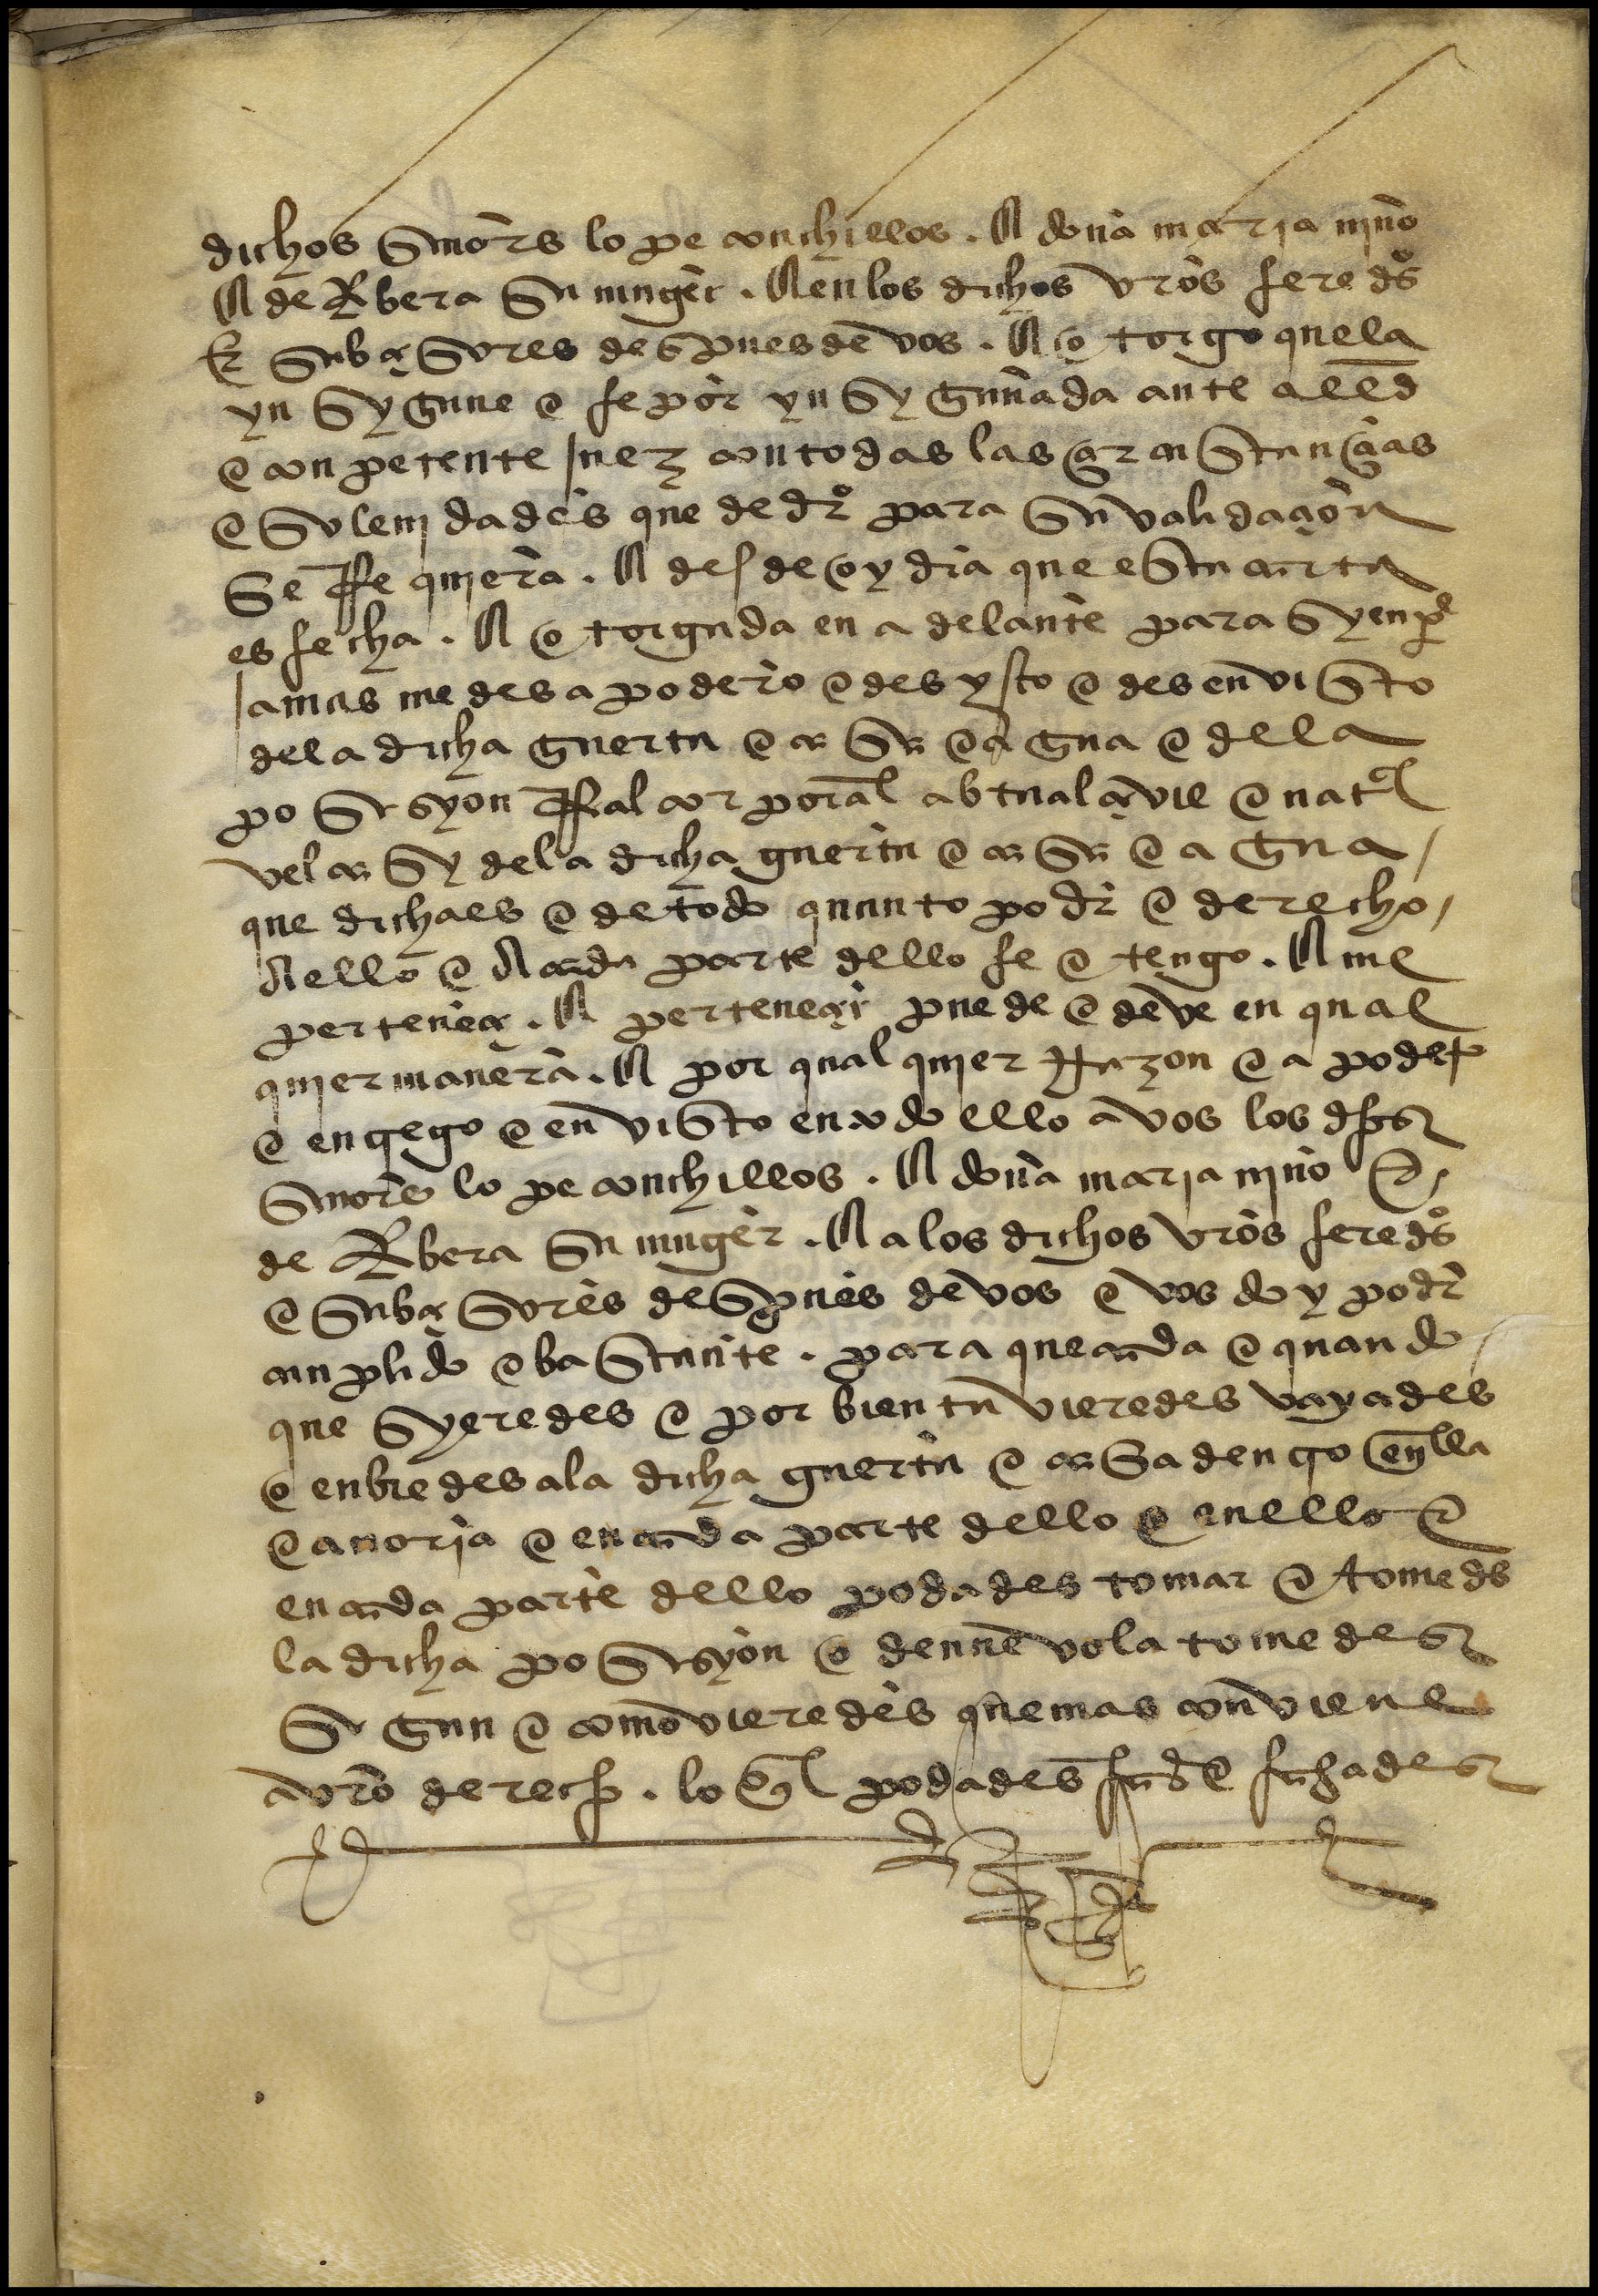 dichos señores lope conchillos . E doña maria niño
E de Ribera su muger . E en los dichos vros herederos
E subçesores despues de vos . E otorgo que la
ynsygnue e he por ynsygnuada ante allde
e conpetente juez con todas las çircunstançias
e solenidades que de dro para su validaçion
se Requiera . E desde oy dia que esta carta
es fecha . E otorgada en adelante para syenpre
jamas me desapodero e desysto e desenvisto
de la dicha guerta e casa e agua e de la
posesyon Real corporal abtual çevil e natural
vel casy de la dicha guerta e casa e agua
que dicha es e de todo quanto poder e derecho
A ello e A cada parte dello he e tengo . E me
perteneçe . E perteneçer puede e deve en qual
quier manera . E por qual quier Razon e apodero
e entrego e envisto en todo ello a vos los dichos
señores lope conchillos . E doña maria niño e
de Ribera su muger . E a los dichos vros herederos
e subçesores despues de vos e vos doy poder
conplido e bastante . para que cada e quando
que quisyeredes e por bien tuvieredes vayades
e enbiedes a la dicha guerta e casa dentro en ella
e anoria e en cada parte dello e en ello e
en cada parte dello podades tomar e tomedes
la dicha posesyon e de nuevo la tomedes
segun e como vieredes que mas conviene
a vro derecho . lo qual podades faser e fagades